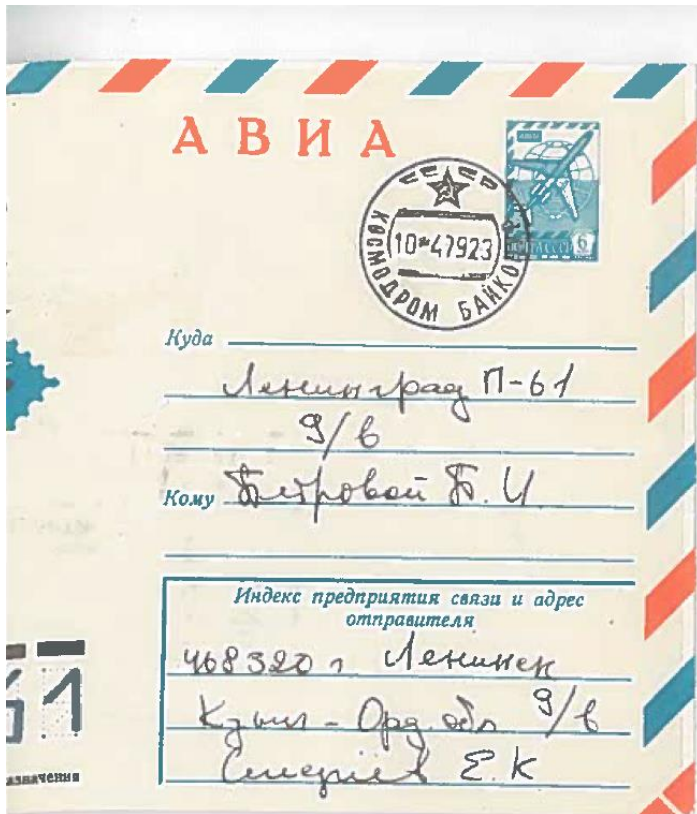 АВИА
АВИА
ПОЧТА СССР 6
КОСМОДРОМ БАЙКОНУР
10*47923
Куда
Ленинград П-61
д/в
Кому Петровой Б. И.
Индекс предприятия связи и адрес
отправителя
468320 г Ленинск
Кзыл-Орд. обл д/в
Е. К
61
азначения